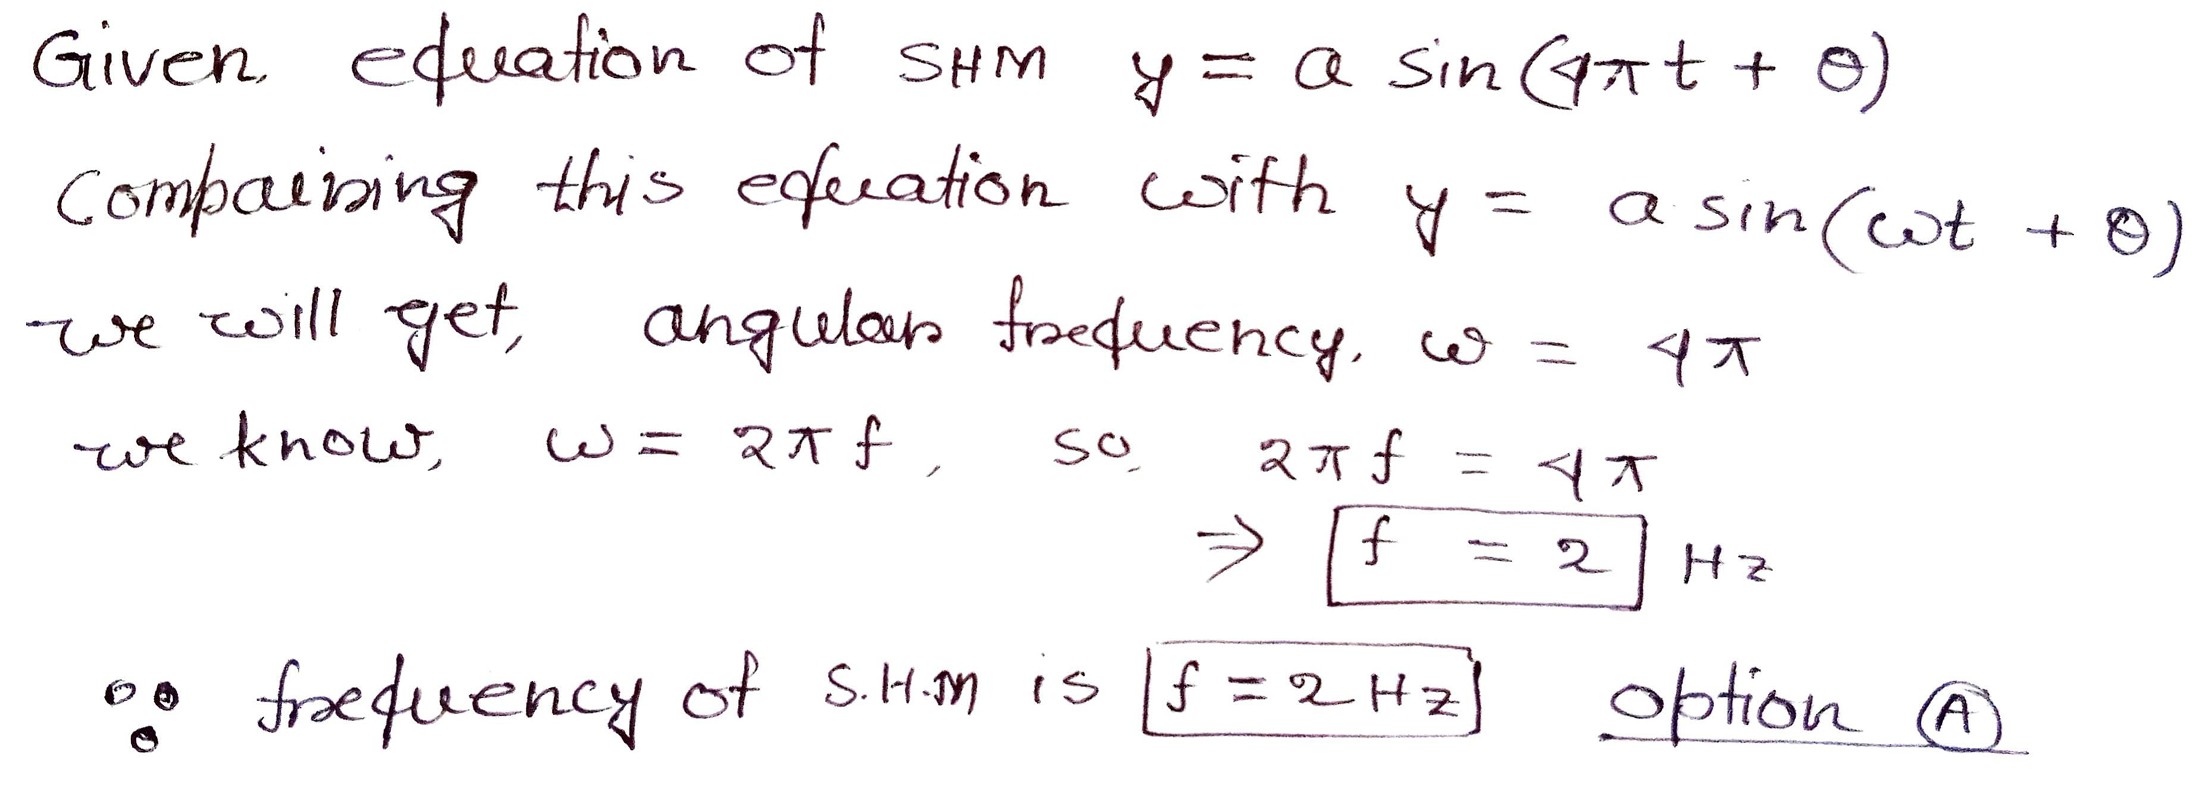 Given equation of SHM y = a sin(4πt + θ)
Comparining this equation with y = a sin(ωt + θ)
we will get, angular frequency, ω = 4π
we know, ω = 2πf, so, 2πf = 4π
⇒ f = 2 Hz
∵ frequency of S.H.M is f = 2 Hz option A